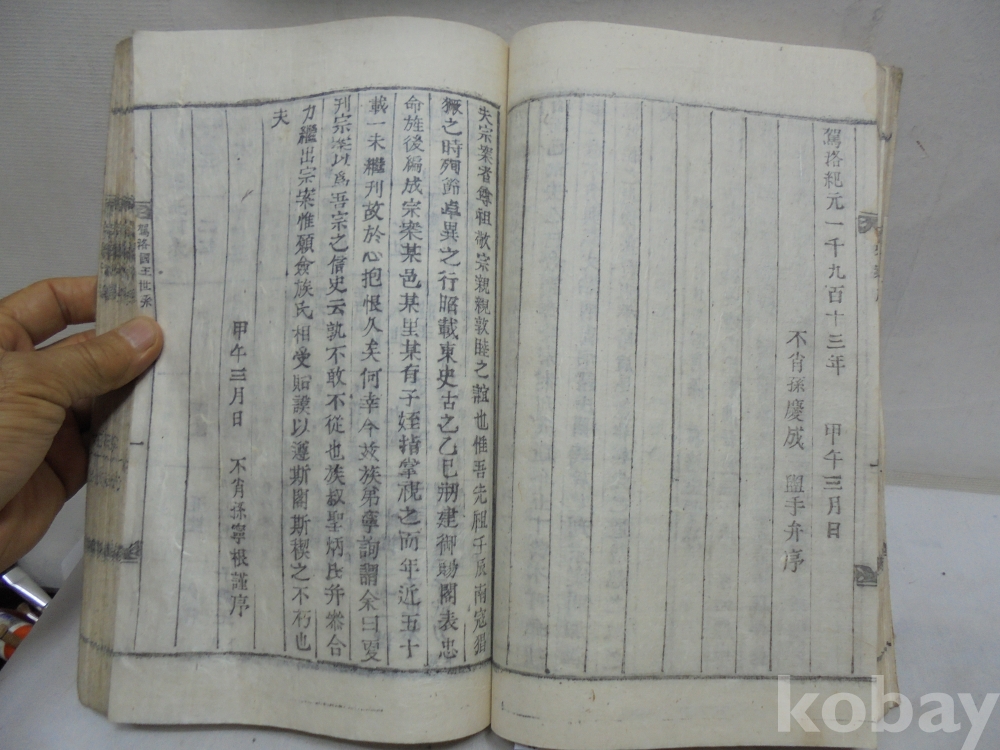 駕洛紀元一千九百十三年 甲午三月日
不肖孫慶成 盥手弁序
夫宗案者尊祖敬宗親親敦睦之誼也惟吾先祖壬辰南寇猖
獗之時殉節卓異之行昭載東史古之乙巳刱建御賜閣表忠
命旌後編成宗案某邑某里某有子姪指掌視之而年近五十
載一未繼刊故於心抱恨久矣何幸今玆族弟寧詢謂余曰更
刊宗案以爲吾宗之信史云孰不敢不從也族叔聖炳氏幷發合
力繼出宗案惟願僉族氏相受貽謨以遵斯閣斯稧之不朽也
夫
甲午三月日 不肖孫寧根謹序
駕洛國王世系
一
kobay